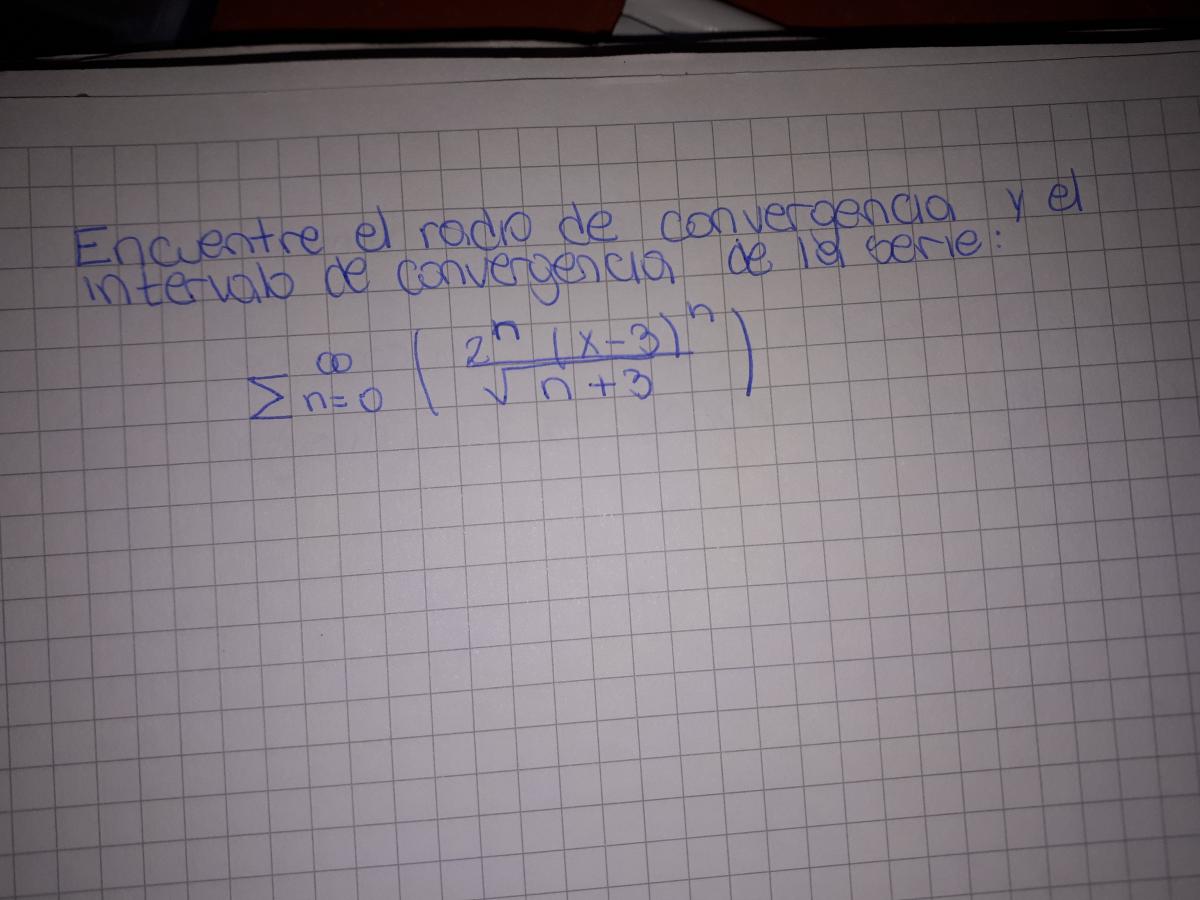 Encuentre el radio de convergencia y el
intervalo de convergencia de la serie:
∑ n=0 ∞ ( 2^n (x-3)^n / √n+3 )